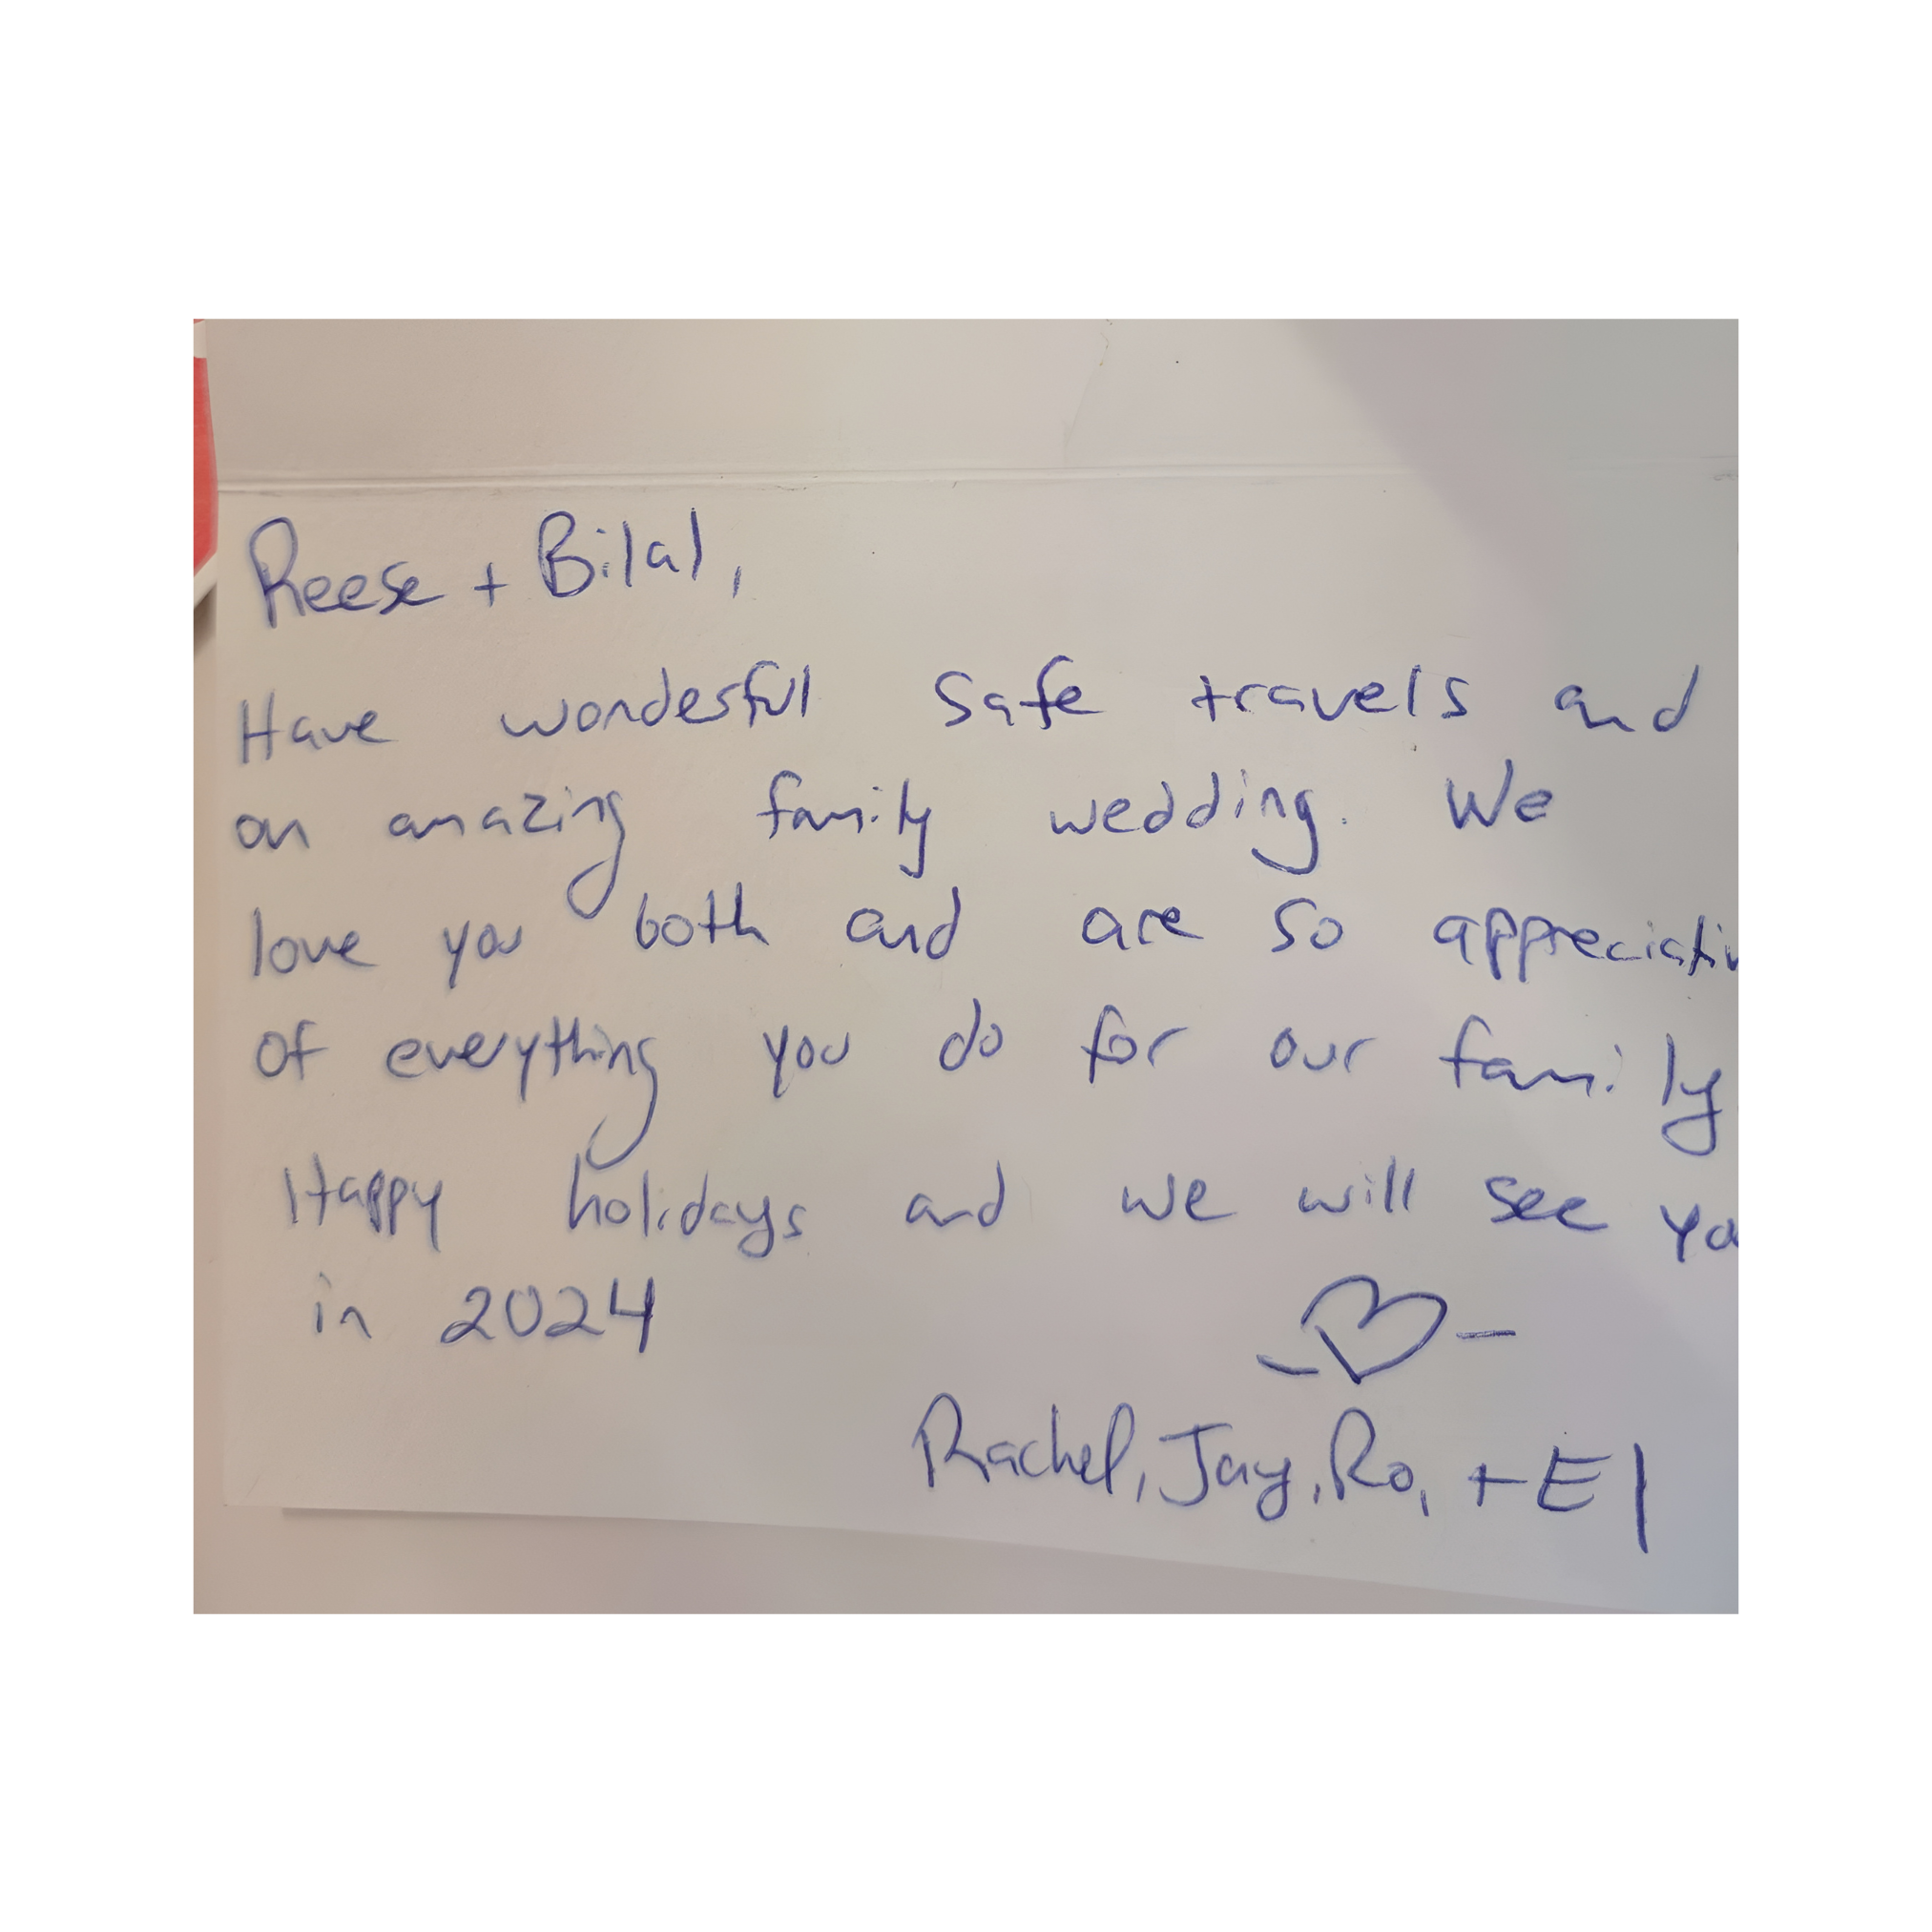 Reese + Bilal,
Have wonderful safe travels and
an amazing family wedding. We
love you both and are so appreciativ
of everything you do for our family
Happy holidays and we will see yo
in 2024
Rachel, Jay, Ro, + El